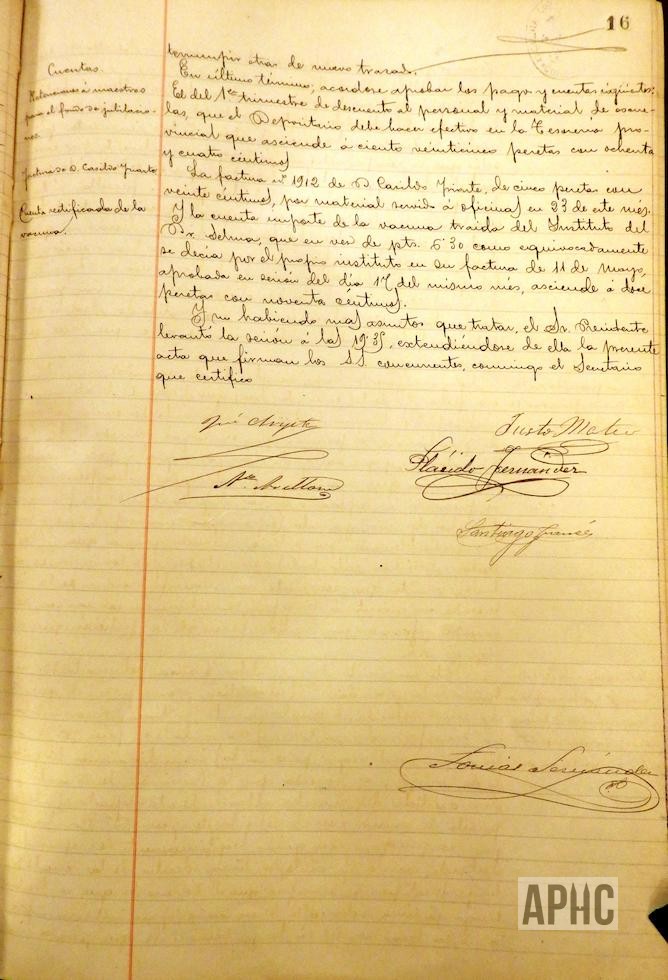 16
Cuentas.
Retenciones á maestros
para el fondo de jubilacio-
nes.
Factura de D. Casildo Yriarte.
Cuenta rectificada de la
vacuna
terrumpir otras de nuevo trazado.
En último término, acordose aprobar los pagos y cuentas sigtes:
El del 1er trimestre de descuento al personal y material de escue-
las, que el Depositario debe hacer efectivo en la Tesorería pro-
vincial que asciende á ciento veinticinco pesetas con ochenta
y cuatro céntimos
La factura nº 1912 de D. Casildo Yriarte, de cinco pesetas con
veinte céntimos, por material servido á oficinas en 23 de este mes.
Y la cuenta importe de la vacuna traída del Instituto del
Dr. Selma, que en vez de pts. 6'30 como equivocadamente
se decía por el propio instituto en su factura de 11 de Mayo,
aprobada en sesión del día 17 del mismo mes, asciende á doce
pesetas con noventa céntimos.
Y no habiendo mas asuntos que tratar, el Sr. Presidente
levantó la sesión á las 19'35, extendiéndose de ella la presente
acta que firman los SS. concurrentes, conmigo el Secretario
que certifico
Justo Mateo
Plácido Fernández
Santiago Francés
APHC